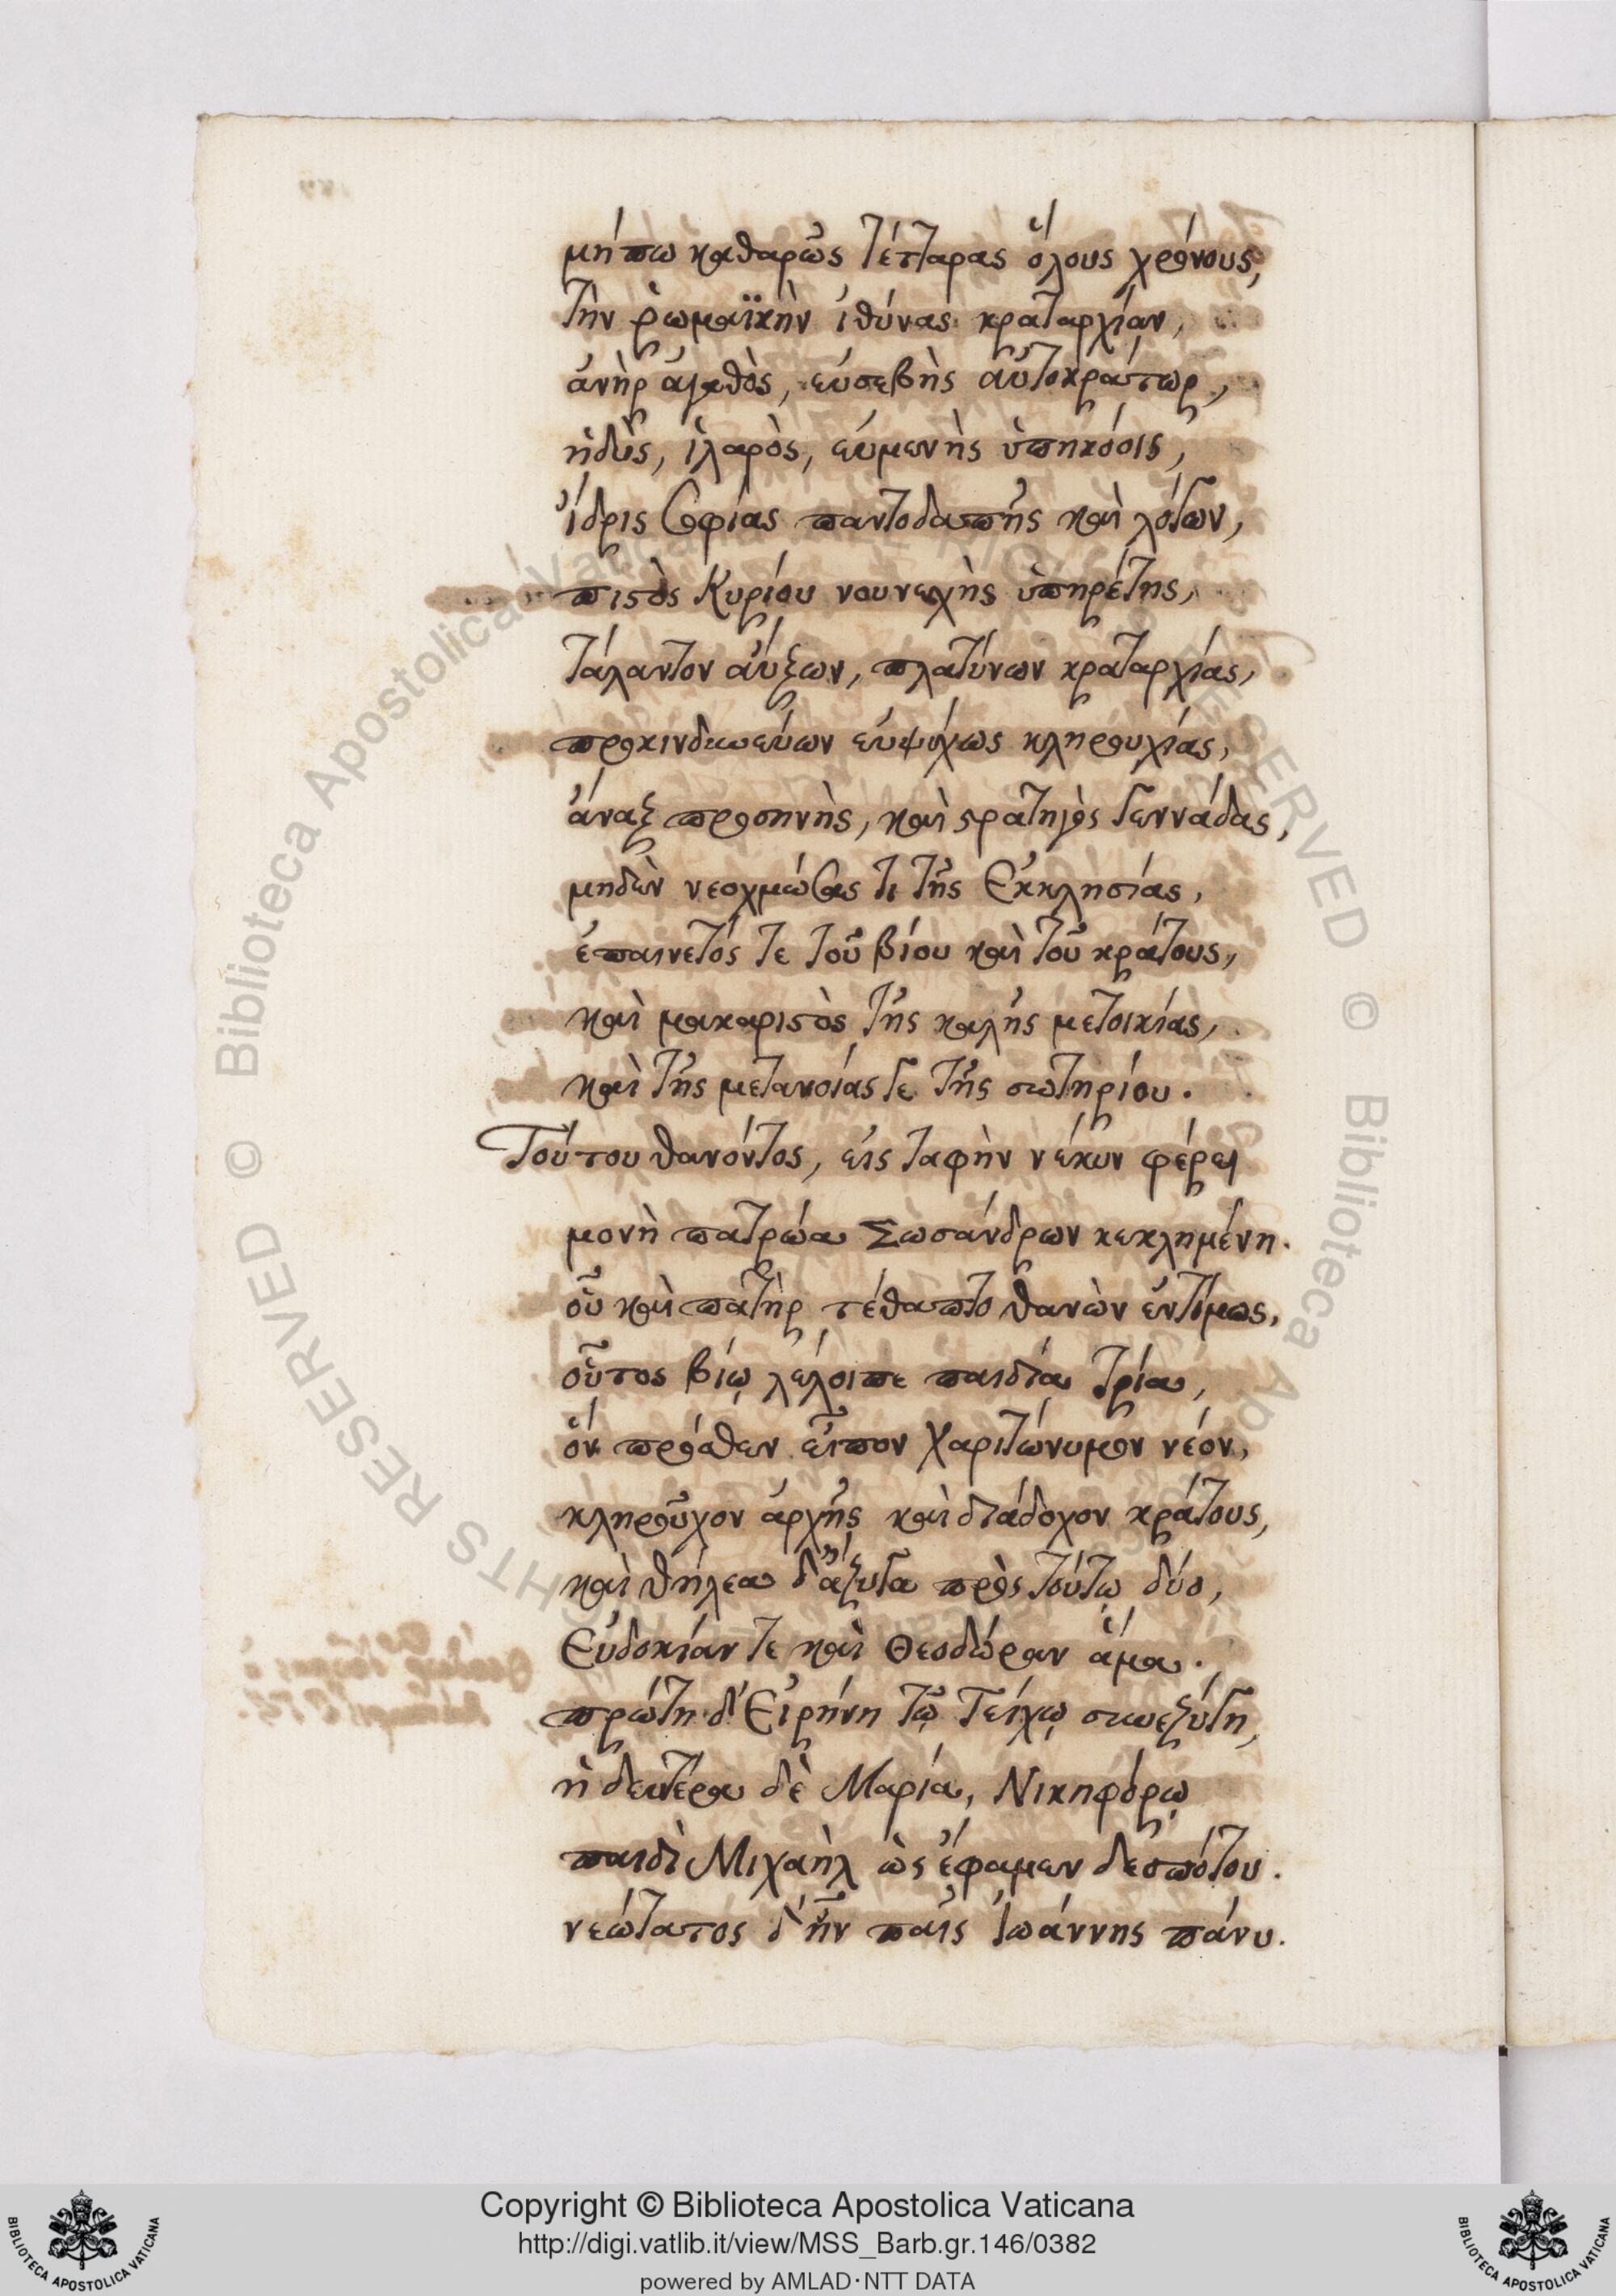 μήπω καθαρῶς τέτταρας ὅλους χρόνους,
τὴν ῥωμαϊκὴν ἰθύνας κραταρχίαν,
ἀνὴρ ἀγαθὸς, εὐσεβὴς αὐτοκράτωρ,
ἡδὺς, ἱλαρὸς, εὐμενὴς ὑπηκόοις,
ἴδρις σοφίας παντοδαπῆς καὶ λόγων,
πιστὸς Κυρίου νουνεχὴς ὑπηρέτης,
τάλαντον αὔξων, πλατύνων κραταρχίας,
προκινδυνεύων εὐψύχως κληρουχίας,
ἄναξ προσηνὴς, καὶ στρατηγὸς γεννάδας,
μηδὲν νεοχμώσας τι τῆς Ἐκκλησίας,
ἐπαινετός τε τοῦ βίου καὶ τοῦ κράτους,
καὶ μακαριστὸς τῆς καλῆς μετοικίας,
καὶ τῆς μετανοίας γε τῆς σωτηρίου.
Τούτου θανόντος, εἰς ταφὴν νέκυν φέρει
μονὴ πατρώα Σωσάνδρων κεκλημένη.
οὗ καὶ πατὴρ τέθαπτο θανὼν ἐντίμως,
οὗτος βίῳ λέλοιπε παιδία τρία,
ὃν πρόσθεν εἶπον Χαριτώνυμον νέον,
κληροῦχον ἀρχῆς καὶ διάδοχον κράτους,
καὶ θήλεα δ' ἄζυγα πρὸς τούτῳ δύο,
Εὐδοκίαν τε καὶ Θεοδώραν ἅμα.
πρώτη δ' Εἰρήνη τῷ Τείχῳ συνεζύγη,
ἡ δευτέρα δὲ Μαρία, Νικηφόρῳ
παιδὶ Μιχαὴλ ὡς ἔφαμεν δεσπότου.
νεώτατος δ' ἦν παῖς Ἰωάννης πάνυ.
Copyright © Biblioteca Apostolica Vaticana
http://digi.vatlib.it/view/MSS_Barb.gr.146/0382
powered by AMLAD·NTT DATA